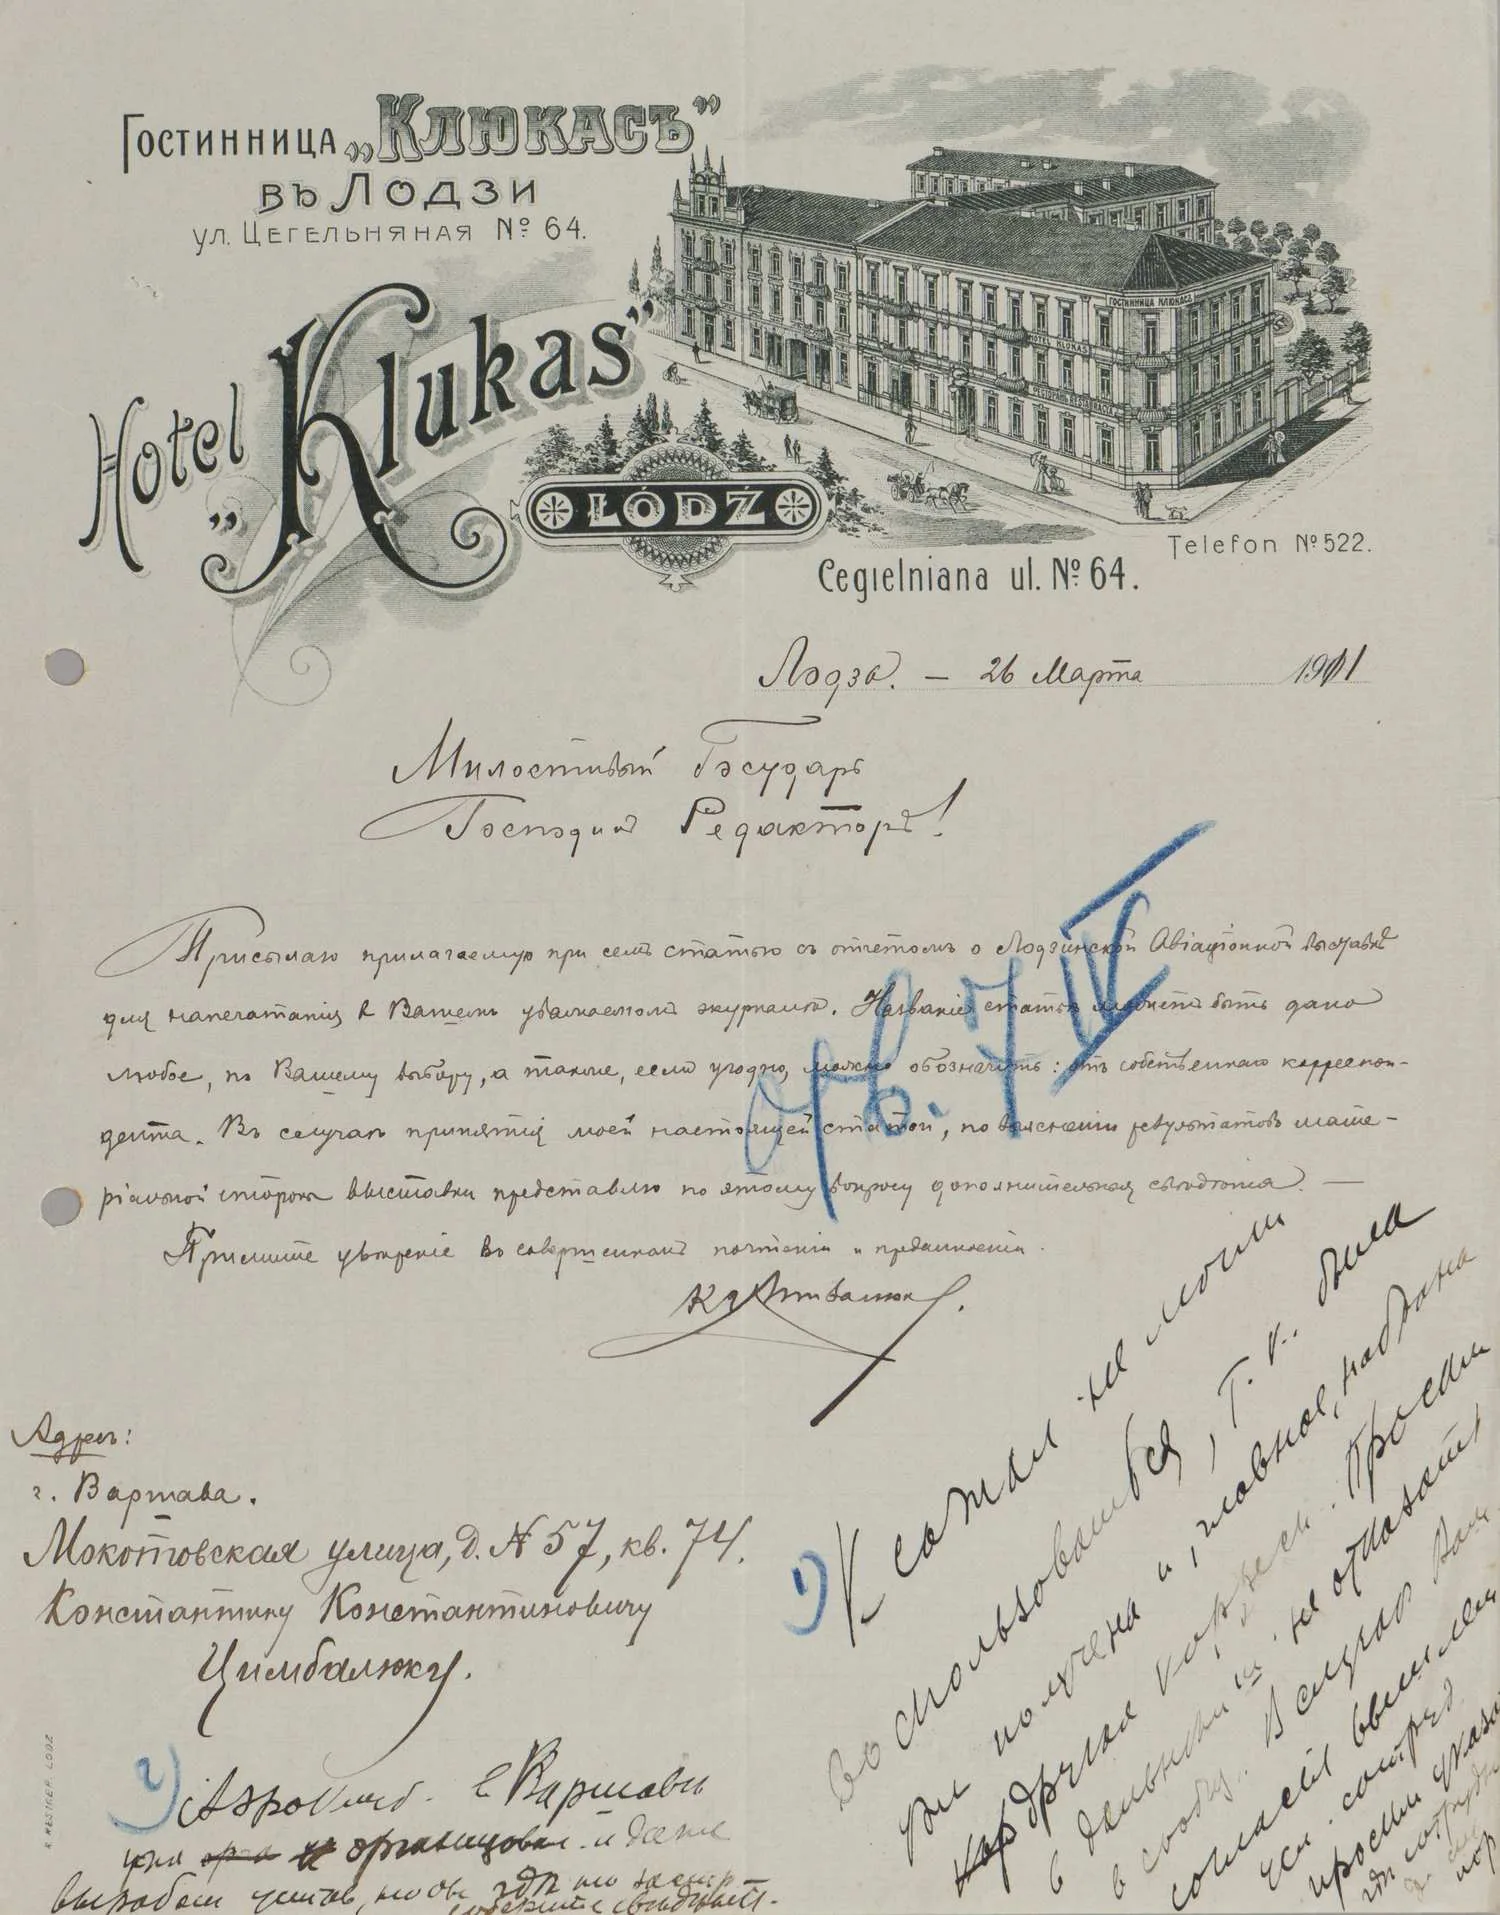 Гостинница „Клюкасъ”
въ Лодзи
ул. Цегельняная № 64.
Hotel „Klukas”
ŁÓDŹ
ГОСТИННИЦА КЛЮКАСЪ
HOTEL KLUKAS
Telefon № 522.
Cegielniana ul. № 64.
Лодзь. — 26 Марта 1911
Милостивый Государь
Господинъ Редакторъ!
Присылаю прилагаемую при семъ статью съ отчетомъ о Лодзинской Авіаціонной выставкѣ
для напечатанія в Вашемъ уважаемомъ журналѣ. Названіе статьи можетъ быть дано
любое, по Вашему выбору, а также, если угодно, можно обозначить: отъ собственнаго корреспон-
дента. Въ случаѣ принятія моей настоящей статьи, по выясненіи результатовъ мате-
ріальной стороны выставки представлю по этому вопросу дополнительныя свѣдѣнія. —
Примите увѣреніе въ совершенномъ почтеніи и преданности.
К Цимбалюкъ.
отв. 7 IV
Адресъ:
г. Варшава.
Мокотовская улица, д. N 57, кв. 74.
Константину Константиновичу
Цимбалюку.
1) К сожал не могли
воспользоваться, т. к. была
уже получена и, главное, набрана
кор другая корресп. Просим
в дальнѣйш не отказать
в сообщ. В случаѣ Ваш
согласія вышлем
просим указа
2) Аэроклуб. в Варшавѣ
уже орга и организован. и даже
выработ устав,
R. RESIGER LODZ